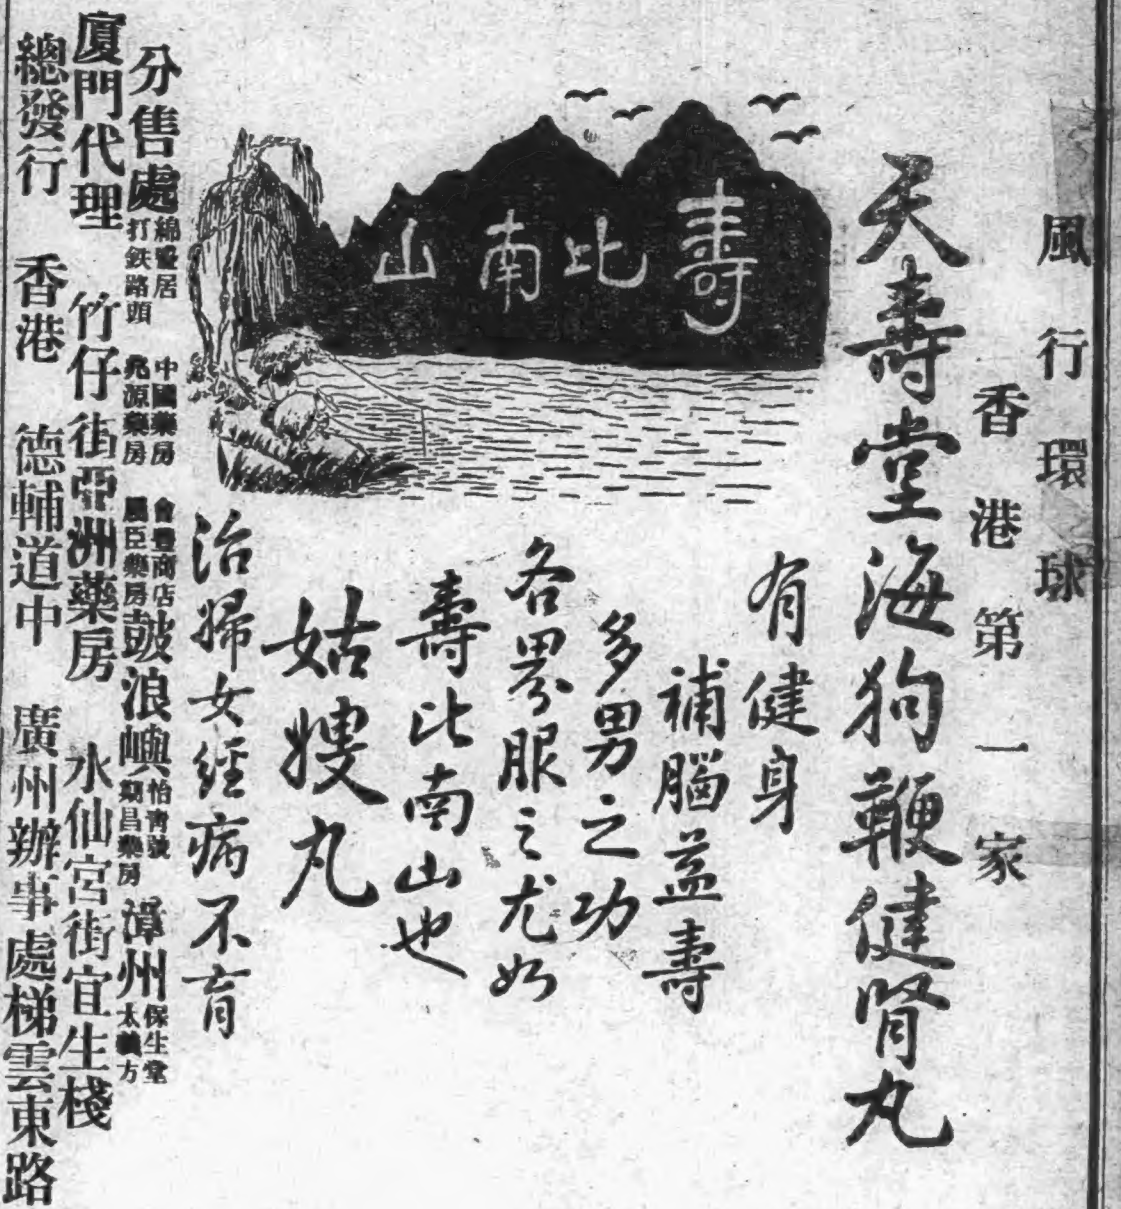 風行環球
香港第一家
天壽堂海狗鞭健腎丸
壽比南山
有健身
補腦益壽
多男之功
各界服之尤如
壽比南山也
姑嫂丸
治婦女經病不育
分售處
打鉄路頭
中國藥房
兆源藥房
會豐商店
藥房
鼓浪嶼
怡青號
昌藥房
漳州
保生堂
太義方
廈門代理 竹仔街亞洲藥房 水仙宮街宜生棧
總發行 香港 德輔道中 廣州辦事處梯雲東路